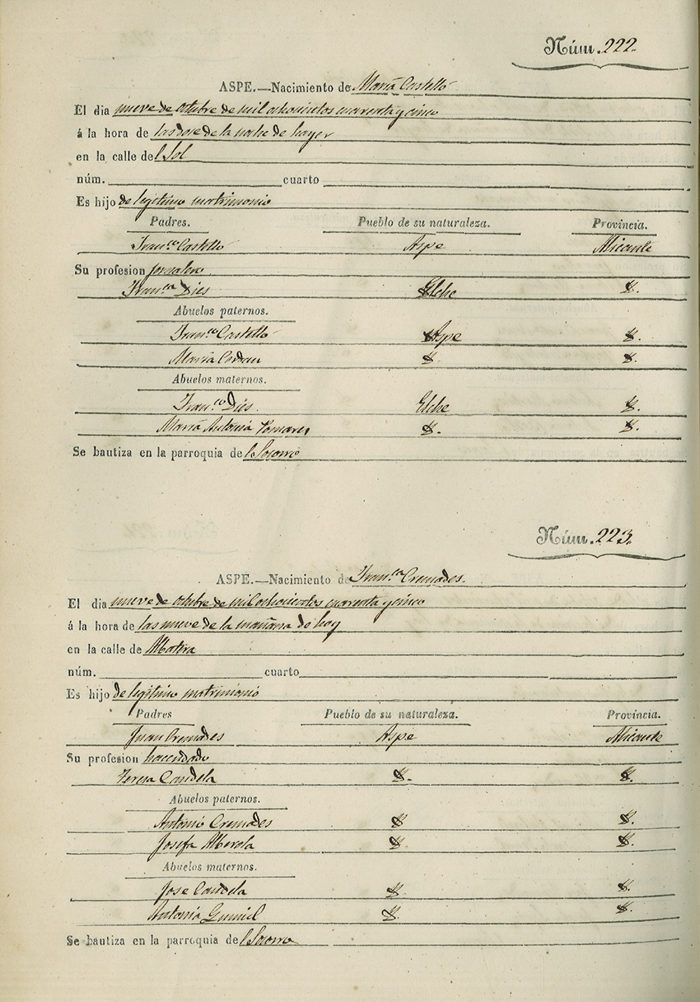 Núm. 222.
ASPE.—Nacimiento de Maria Castelló
El dia nueve de octubre de mil ochocientos cuarenta y cinco
á la hora de las doce de la noche de hayer
en la calle del Sol
núm. cuarto
Es hijo de legitimo matrimonio
Padres. Pueblo de su naturaleza. Provincia.
Franco Castelló Aspe Alicante
Su profesion jornalero
Franca Dies Elche
Abuelos paternos.
Franco Castelló Aspe
Maria
Abuelos maternos.
Franco Dies Elche
Maria Antonia Pomares
Se bautiza en la parroquia del Socorro
Núm. 223.
ASPE.—Nacimiento de Franca Cremades.
El dia nueve de octubre de mil ochocientos cuarenta y cinco
á la hora de las nueve de la mañana de hoy
en la calle de
núm. cuarto
Es hijo de legitimo matrimonio
Padres Pueblo de su naturaleza. Provincia.
Juan Cremades Aspe Alicante
Su profesion hacendado
Teresa Candela
Abuelos paternos.
Antonio Cremades
Josefa Alberola
Abuelos maternos.
Jose Candela
Antonia
Se bautiza en la parroquia del Socorro